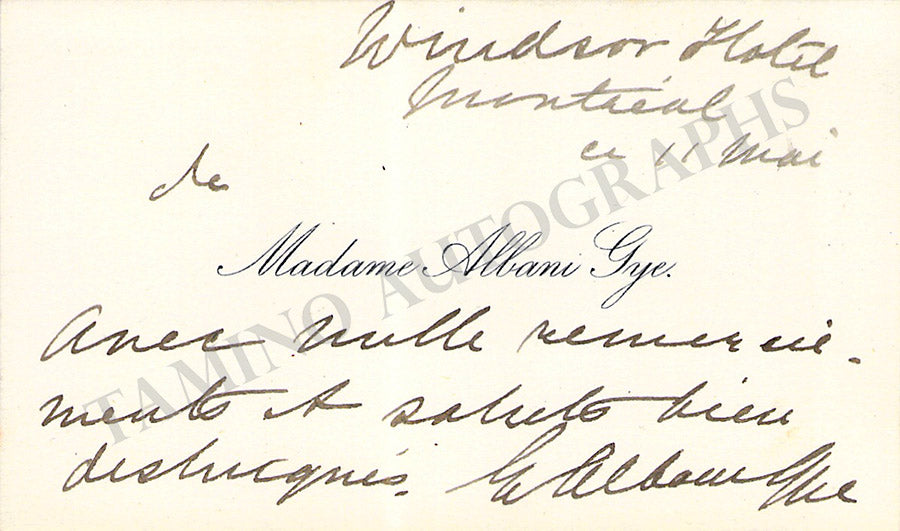 Windsor Hotel
Montréal
ce 11 Mai
de
Madame Albani Gye.
Avec mille remercie-
ments et saluts bien
distingués. E Albani Gye
TAMINO AUTOGRAPHS